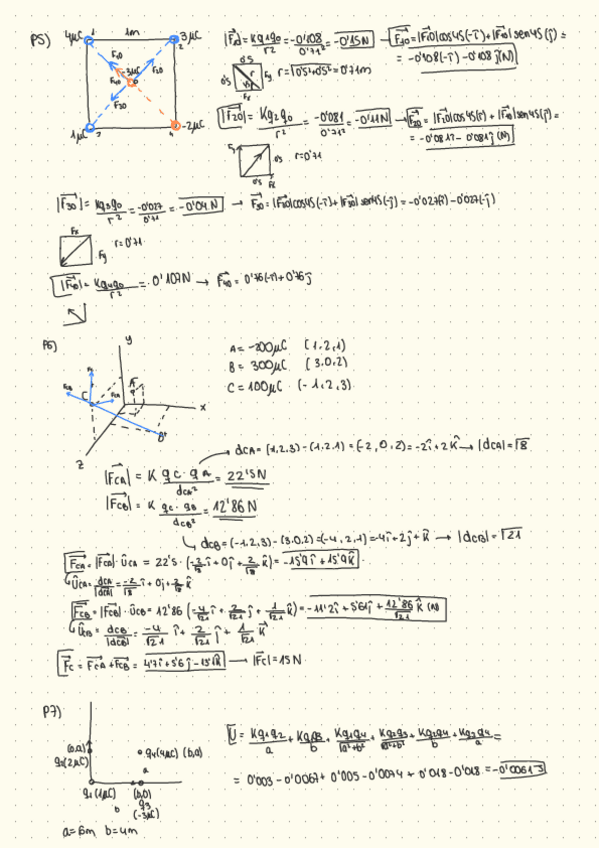 P5)
4μC 1 1m 3μC
2
F10
-3μC
F40
F20
F30
1μC 3 4 -2μC
|F10| = Kq1q0 / r² = -0'108 / 0'71² = -0'15N → F10 = |F10|cos45(-i)+|F10|sen45(j) =
= -0'108(-i) -0'108j(N)
0'5 r Fy r = √0'5²+0'5² = 0'71m
0'5
Fx
|F20| = Kq2q0 / r² = -0'081 / 0'71² = -0'11N → F20 = |F20|cos45(i) + |F20|sen45(j) =
= -0'081i - 0'081j (N)
Fy 0'5 r = 0'71
0'5 Fx
|F30| = Kq3q0 / r² = -0'027 / 0'71 = -0'04N → F30 = |F30|cos45(-i)+|F30|sen45(-j) = -0'027(i) -0'027(-j)
Fx
Fy r = 0'71
|F40| = Kq4q0 / r² = 0'107N → F40 = 0'76(-i) + 0'76j
P6)
y
A = -200μC (1,2,1)
B = 300μC (3,0,2)
C = 100μC (-1,2,3)
FCB C FCA A
x
B
z
dCA = (-1,2,3) - (1,2,1) = (-2,0,2) = -2i + 2k → |dCA| = √8
|FCA| = K qC · qA / dCA² = 22'5N
|FCB| = K qC · qB / dCB² = 12'86N
dCB = (-1,2,3) - (3,0,2) = (-4,2,1) = -4i + 2j + k → |dCB| = √21
FCA = |FCA| · UCA = 22'5 · (-2/√8 i + 0j + 2/√8 k) = -15'9i + 15'9k
UCA = dCA / |dCA| = -2/√8 i + 0j + 2/√8 k
FCB = |FCB| · UCB = 12'86 (-4/√21 i + 2/√21 j + 1/√21 k) = -11'2i + 5'61j + 12'86/√21 k (N)
UCB = dCB / |dCB| = -4/√21 i + 2/√21 j + 1/√21 k
FC = FCA + FCB = 4'7i + 5'6j - 15'1k → |FC| = 15N
P7)
(0,a)
q2(2μC)
q4(4μC) (b,a)
a
q1(1μC) (b,0)
b q3
(-3μC)
a = 6m b = 4m
U = Kq1q2 / a + Kq1q3 / b + Kq1q4 / √a²+b² + Kq2q3 / √a²+b² + Kq2q4 / b + Kq3q4 / a =
= 0'003 - 0'0067 + 0'005 - 0'0074 + 0'018 - 0'018 = -0'0061J